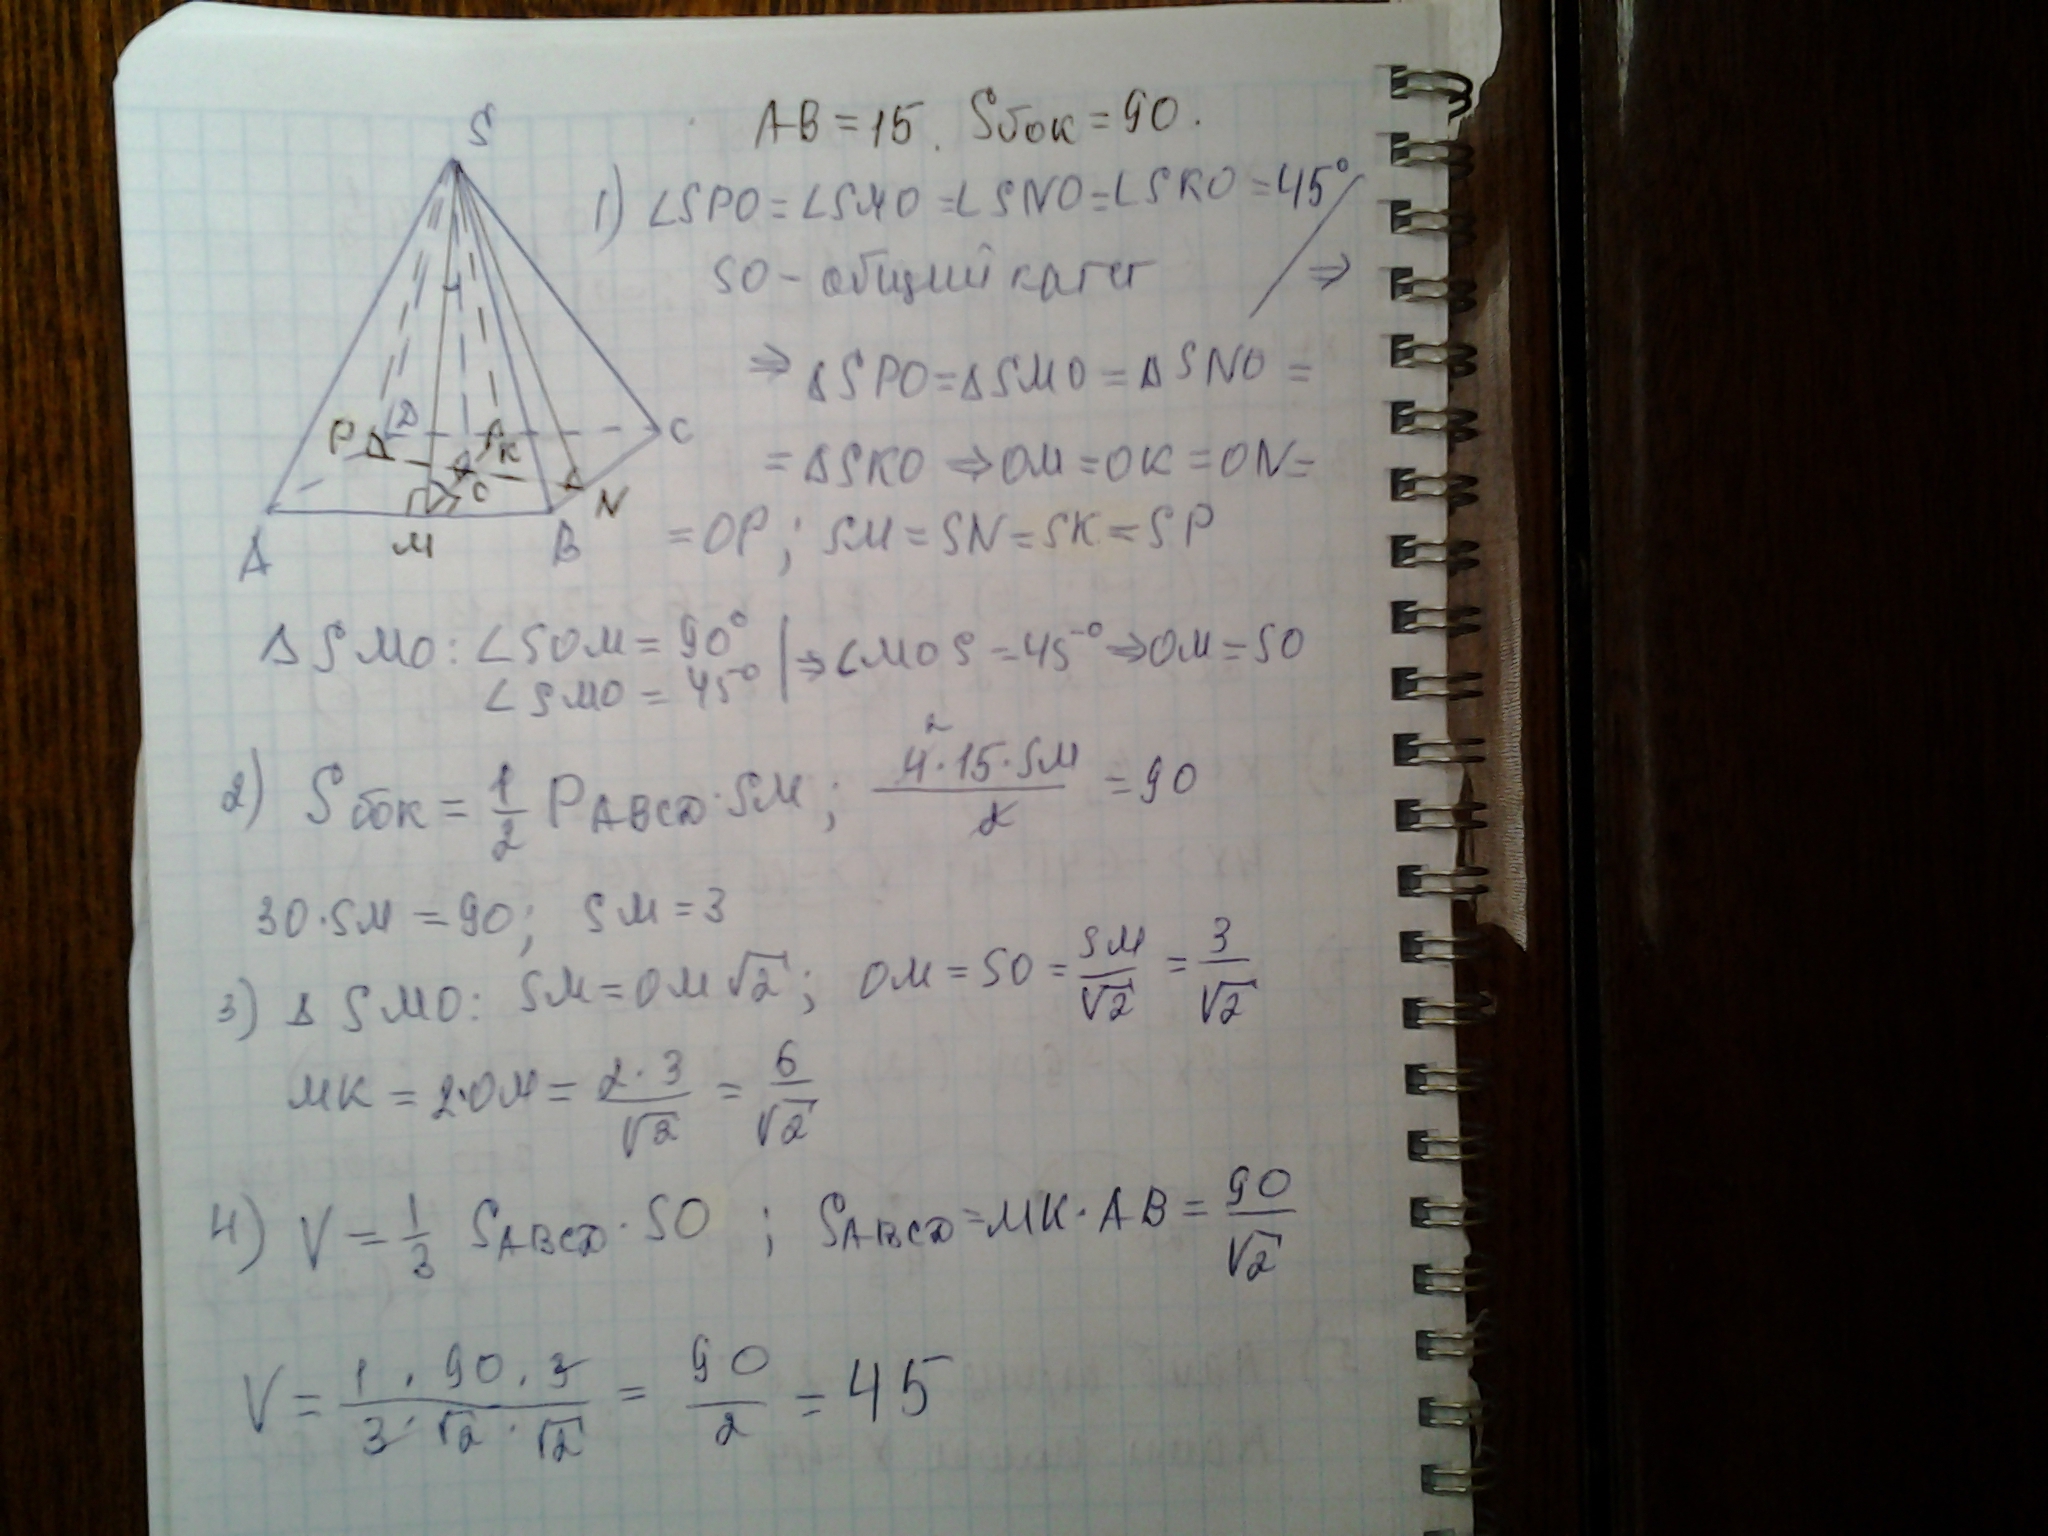 S
P
D
K
C
O
N
A
M
B
AB = 15. Sбок = 90.
1) ∠SPO = ∠SMO = ∠SNO = ∠SKO = 45°
SO - общий катет ⇒
⇒ ΔSPO = ΔSMO = ΔSNO =
= ΔSKO ⇒ OM = OK = ON =
= OP; SM = SN = SK = SP
ΔSMO: ∠SOM = 90° | ⇒ ∠MOS = 45° ⇒ OM = SO
∠SMO = 45°
2) Sбок = 1/2 P_ABCD · SM; (4² · 15 · SM)/2 = 90
30 · SM = 90; SM = 3
3) ΔSMO: SM = OM√2; OM = SO = SM/√2 = 3/√2
MK = 2 · OM = (2 · 3)/√2 = 6/√2
4) V = 1/3 S_ABCD · SO; S_ABCD = MK · AB = 90/√2
V = (1 · 90 · 3)/(3 · √2 · √2) = 90/2 = 45